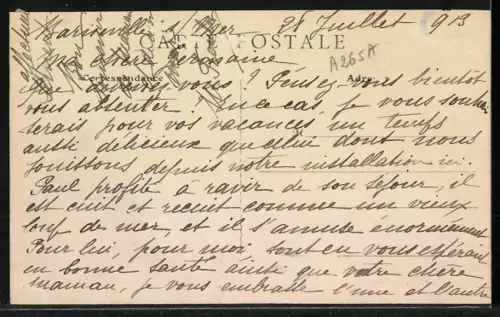 28 Juillet 913
CARTE POSTALE
Ma chère Germaine
Correspondance
A265A
Adr
Que devenez-vous ? Pensez-vous bientôt
vous absenter ? En ce cas, je vous souhai
terais pour vos vacances un temps
aussi délicieux que celui dont nous
jouissons depuis notre installation ici.
Paul profite à ravir de son séjour, il
est cuit et recuit comme un vieux
loup de mer, et il s'amuse énormément
Pour lui, pour moi tout en vous espérant
en bonne santé ainsi que votre chère
maman, je vous embrasse l'une et l'autre